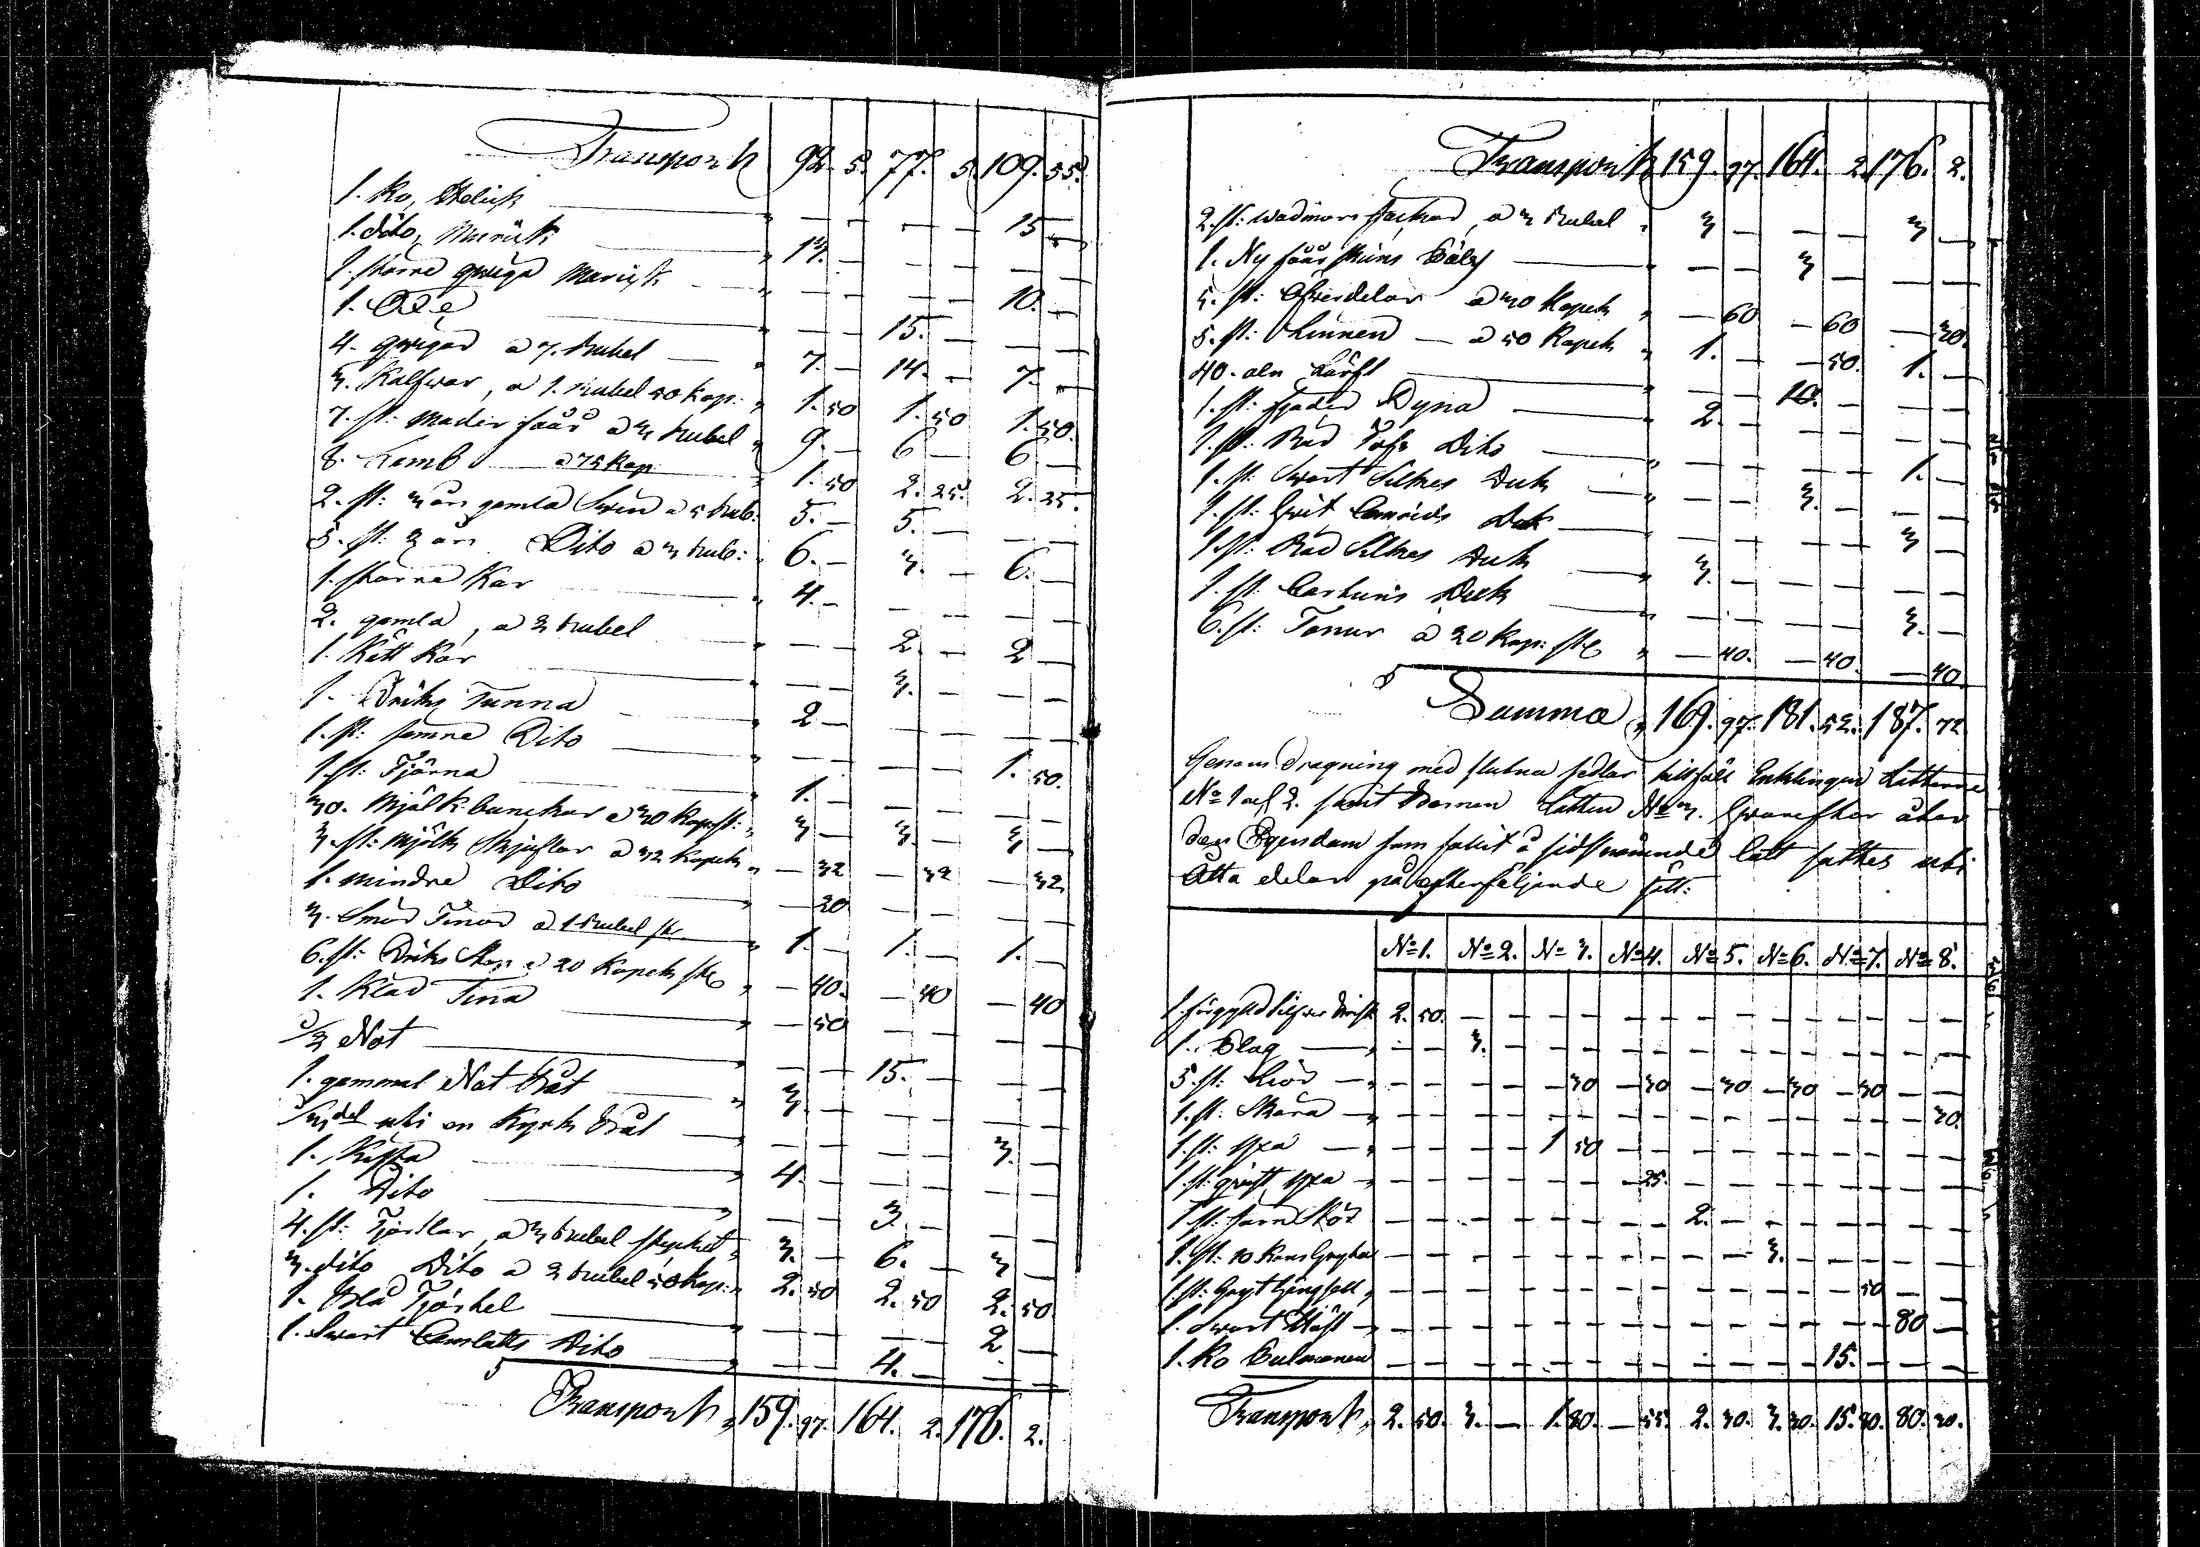 Transport 92. 5. 77. 5. 109. 55.
1. Ko, Helick — — — — 15 —
1. dito, Murick 13. — — — — —
1. större qwiga Murick — — — — 10. —
1. Oxe — — 15. — — —
4. qwigor a 7. rubel 7. — 14. — 7. —
3. Kalfwar, a 1. rubel 50 kop: 1. 50 1. 50 1. 50.
7. st: moder fåår a 3 rubel 9. — 6 — 6 —
8. Lamb a 75 kop 1. 50 2. 25. 2. 25.
2. st: 3 års gamla Swin a 5 rub: 5. — 5. — — —
5. st: 2 års Dito a 3 rub: 6. — 3. — 6. —
1. större Kar 4. — — — — —
2. gamla, a 2 rubel — — 2. — 2 —
1. Kött Kar — — 3. — — —
1. Dricks Tunna 2 — — — — —
1. st: samre Dito — — — — 1. 50.
1. st: Tjärna 1. — — — — —
30. Mjölk bunckar a 30 kop st: 3 — 3. — 3 —
3. st: Mjölk a 32 kopek — 32 — 32 — 32
1. mindre Dito — 20 — — — —
3. Smör Tinor a 1 rubel st 1. — 1. — 1. —
6. st: Dricks Stop a 20 kopek st — 40. — 40 — 40
1. Kläd Tina — 50 — — — —
1/2 Not — — 15. — — —
1. gammal Not Båt 3. — — — — —
1/3 del uti en Kyrk Båt — — — — 3. —
1. Kista 4. — — — — —
1. Dito — — 3. — — —
4. st: Tjortlar, a 3 rubel stycket 3. — 6. — 3 —
3. dito Dito a 2 rubel 50 kop: 2. 50 2. 50 2. 50
1. Blå Tjortel — — — — 2 —
1. Swart Camlotts Dito — — 4. — — —
Transport 159. 97. 164. 2. 176. 2.
Transport 159. 97. 164. 2. 176. 2.
2. st: wadmars a 3 rubel 3 — — — 3 —
1. Ny fåår skins — — 3 — — —
5. st: Öfwerdelar a 30 kopek — 60 — 60 — 30.
5. st: Linnen — a 50 kopek 1. — — 50. 1. —
40. aln Lärft — — 10. — — —
1. st: fjäder Dyna 2. — — — — —
1. st: Dito — — — — 1. —
1. st: Swart Silkes Duk — — 3. — — —
1. st: Duk — — — — 3 —
1. st: Röd Silkes Duk 3. — — — — —
1. st: Cartuns Duk — — — — 3. —
6. st: a 20 kop: st — 40. — 40. — 40
Summa 169. 97. 181. 52. 187. 72
Genom dragning med slutna sedlar tillföll Enklingen Lotterne
No 1 och 2. samt Barnen Lotten No 3. hwarefter åter
den Egendom som fallit å sidstnämnde lott sattes uti
Åtta delar på efterföljande sätt:
No 1. No 2. No 3. No 4. No 5. No 6. No 7. No 8.
1. förgyld silfwer 2. 50. — — — — — — — — — — — — — —
1. Plog — — 3. — — — — — — — — — — — — —
5. st: Lior — — — — — 30 — 30 — 30 — 30 — 30 — —
1. st: Skära — — — — — — — — — — — — — — — 30.
1. st: yxa — — — — 1 50 — — — — — — — — — —
1. st: yxa — — — — — — — 25. — — — — — — — —
1. st: — — — — — — — — 2. — — — — — — —
1. st: 10 kans Gryta — — — — — — — — — — 3. — — — — —
1. st: — — — — — — — — — — — — — 50 — —
1. Swart Häst — — — — — — — — — — — — — — 80 —
1. Ko — — — — — — — — — — — — 15. — — —
Transport 2. 50. 3. — 1. 80. — 55. 2. 30. 3. 30. 15. 80. 80. 30.